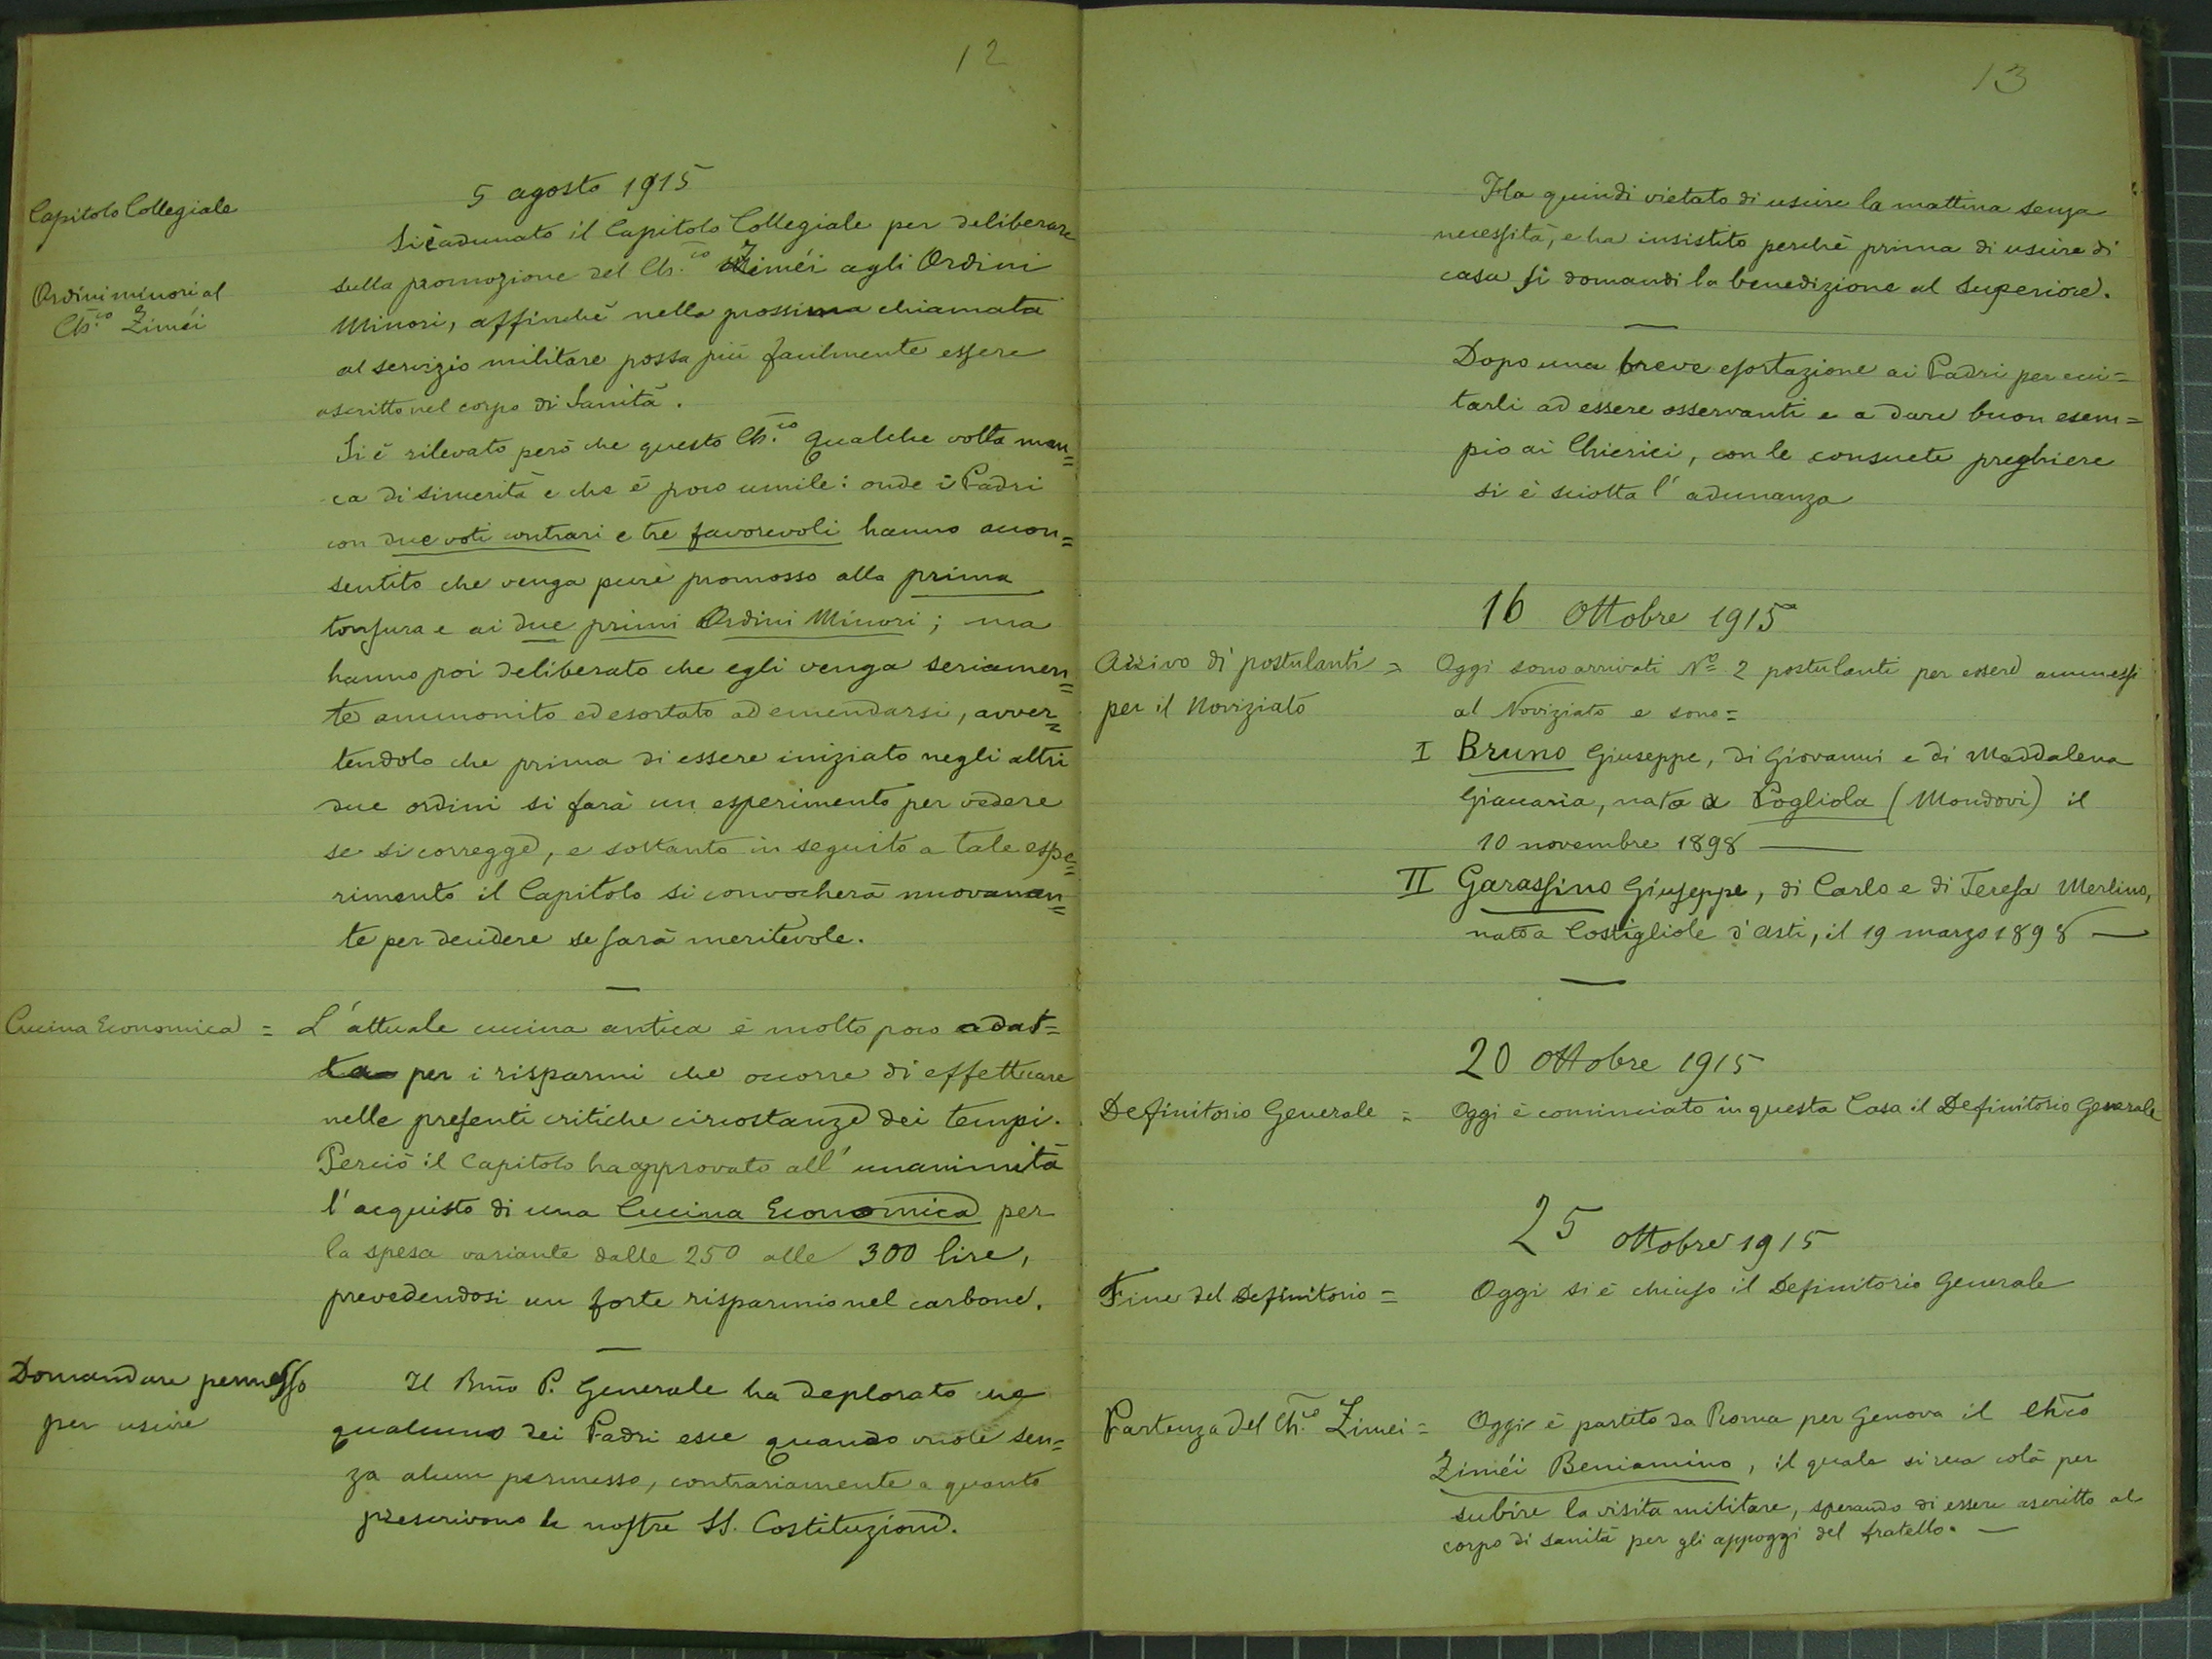 12
5 agosto 1915
Capitolo Collegiale
Si è adunato il Capitolo Collegiale per deliberare
sulla promozione del Ch.co Ziméi agli Ordini
Ordini minori al
Ch.co Ziméi
Minori, affinchè nella prossima chiamata
al servizio militare possa più facilmente essere
ascritto nel corpo di Sanità.
Si è rilevato però che questo Ch.co qualche volta man=
ca di sincerità e che è poco umile: onde i Padri
con due voti contrari e tre favorevoli hanno accon=
sentito che venga pure promosso alla prima
tonsura e ai due primi Ordini Minori; ma
hanno poi deliberato che egli venga seriamen=
te ammonito ed esortato ad emendarsi, avver=
tendolo che prima di essere iniziato negli altri
due ordini si farà un esperimento per vedere
se si corregge, e soltanto in seguito a tale espe=
rimento il Capitolo si convocherà nuovamen=
te per decidere se sarà meritevole.
Cucina Economica = L'attuale cucina antica è molto poco adat=
ta per i risparmi che occorre di effettuare
nelle presenti critiche circostanze dei tempi.
Perciò il Capitolo ha approvato all'unanimità
l'acquisto di una Cucina Economica per
la spesa variante dalle 250 alle 300 lire,
prevedendosi un forte risparmio nel carbone.
Domandare permesso
per uscire
Il Rmo P. Generale ha deplorato che
qualcuno dei Padri esce quando vuole sen=
za alcun permesso, contrariamente a quanto
prescrivono le nostre SS. Costituzioni.
13
Ha quindi vietato di uscire la mattina senza
necessità, e ha insistito perchè prima di uscire di
casa si domandi la benedizione al Superiore.
Dopo una breve esortazione ai Padri per eci=
tarli ad essere osservanti e a dare buon esem=
pio ai Chierici, con le consuete preghiere
si è sciolta l'adunanza
16 Ottobre 1915
Arrivo di postulanti =
per il Noviziato
Oggi sono arrivati No 2 postulanti per essere ammessi
al Noviziato e sono=
I Bruno Giuseppe, di Giovanni e di Maddalena
Giacaria, nato a Pogliola (Mondovi) il
10 novembre 1898
II Garassino Giuseppe, di Carlo e di Teresa Merlino,
nato a Costigliole d'Asti, il 19 marzo 1898
20 Ottobre 1915
Definitorio Generale = Oggi è cominciato in questa Casa il Definitorio Generale
25 ottobre 1915
Fine del Definitorio = Oggi si è chiuso il Definitorio Generale
Partenza del Ch.co Zimei = Oggi è partito da Roma per Genova il Chco
Ziméi Beniamino, il quale si reca colà per
subire la visita militare, sperando di essere ascritto al
corpo di sanità per gli appoggi del fratello.